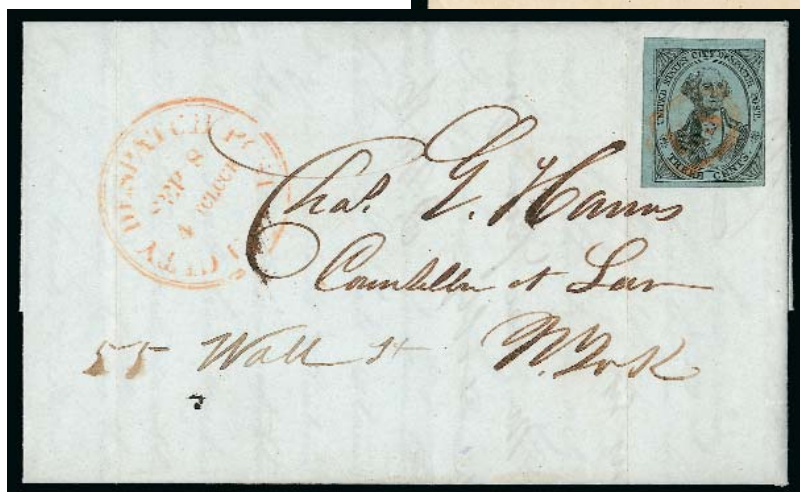 UNITED STATES CITY DESPATCH POST.
THREE CENTS
CITY DESPATCH POST
SEP 8
4 O'CLOCK
Chas. G. Havens
Counsellor at Law
55 Wall St N. York